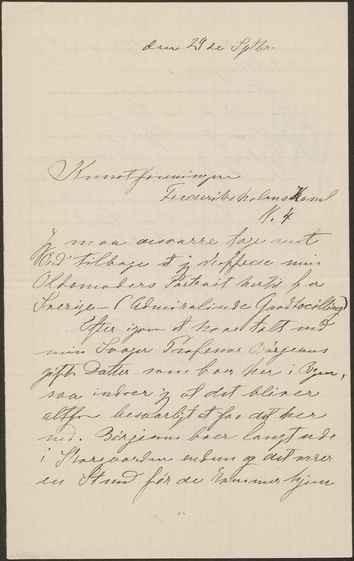 den 29de Septbr.
Kunstforeningen
Frederiksholms Kanal
N. 4
Jeg maa desværre tage mit
Ord tilbage at jeg skaffede min
Oldemoders Portrait hertil fra
Sverige — (Admiralinde
Efter igen at have talt med
min Svoger Professor Börjesons
gifte Datter som bor her i Byen,
saa indser jeg at det bliver
altfor besværligt at faa det her
ned. Börjesons boer langt ude
i Skærgaarden endnu og det varer
en Stund før de kommer hjem